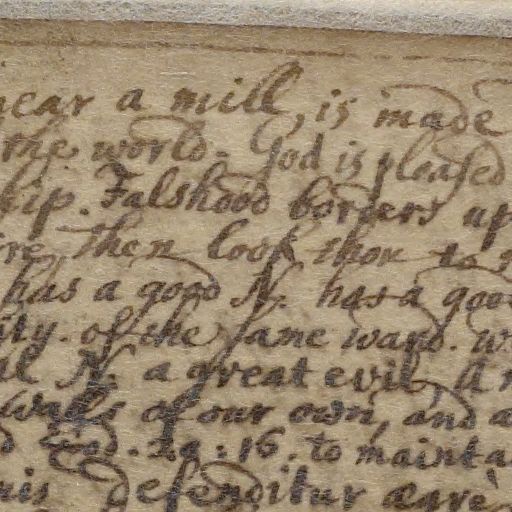 near a mill, is made
the world. God is pleased
ship. Falshood borders up
then look thou to
has a good N. has a good
ity. of the same ward.
N. a great evil, A
walls of our own, and a
16. to mainta
defenditur ægrè